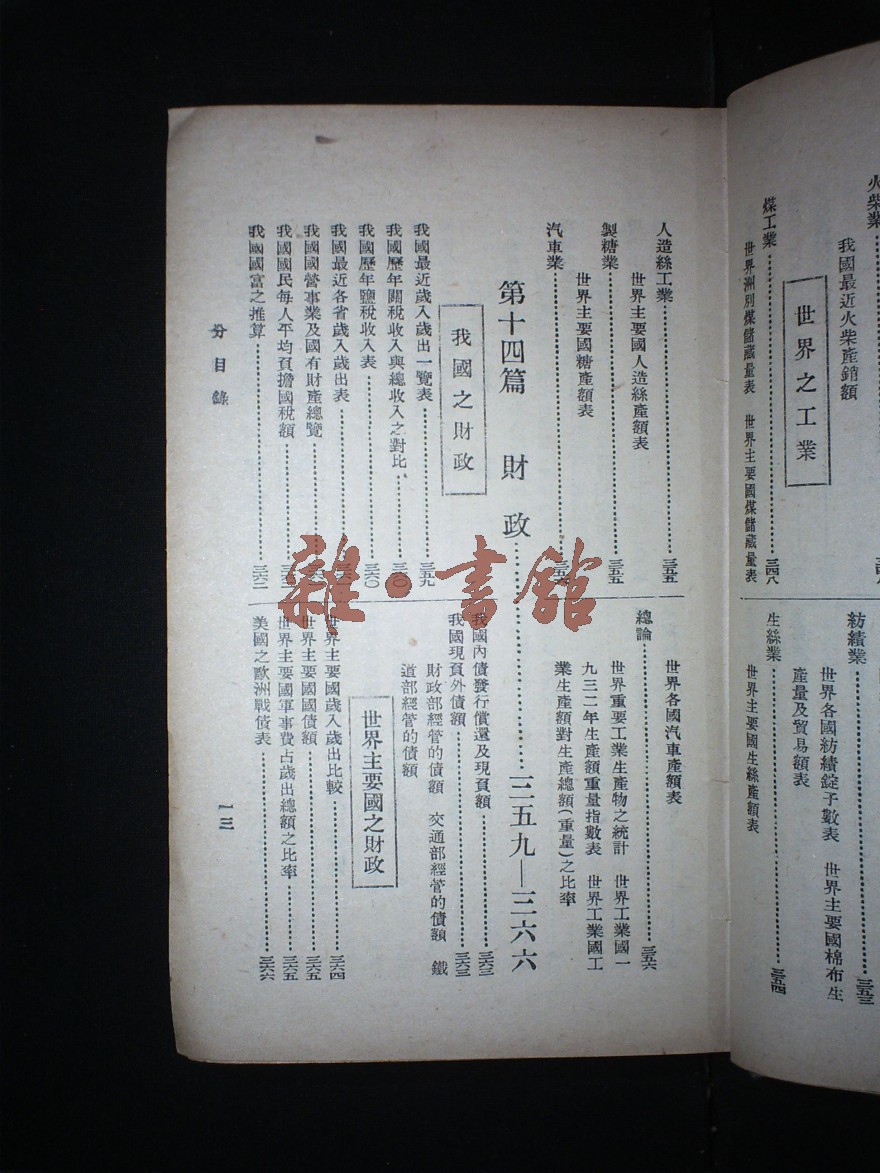 火柴業
我國最近火柴產銷額
世界之工業
煤工業……三四八
世界洲別煤儲藏量表　世界主要國煤儲藏量表
紡績業……三五三
世界各國紡績錠子數表　世界主要國棉布生
產量及貿易額表
生絲業……三五四
世界主要國生絲產額表
人造絲工業……三五五
世界主要國人造絲產額表
製糖業……三五五
世界主要國糖產額表
汽車業
世界各國汽車產額表
總論……三五六
世界重要工業生產物之統計　世界工業國一
九三二年生產額重量指數表　世界工業國工
業生產額對生產總額(重量)之比率
第十四篇　財政……三五九—三六六
我國之財政
我國最近歲入歲出一覽表……三五九
我國歷年關稅收入與總收入之對比……三六〇
我國歷年鹽稅收入表……三六〇
我國最近各省歲入歲出表
我國國營事業及國有財產總覽
我國國民每人平均負擔國稅額
我國國富之推算……三六二
我國內債發行償還及現負額……三六三
我國現負外債額……三六三
財政部經管的債額　交通部經管的債額　鐵
道部經管的債額
世界主要國之財政
世界主要國歲入歲出比較……三六四
世界主要國國債額……三六五
世界主要國軍事費占歲出總額之比率……三六五
美國之歐洲戰債表……三六六
分目錄
一三
雜·書館